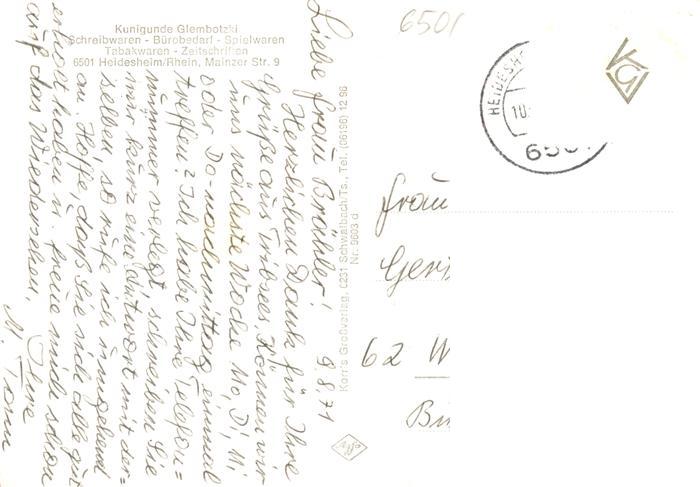 Kunigunde Glembotzki
Schreibwaren - Bürobedarf - Spielwaren
Tabakwaren - Zeitschriften
6501 Heidesheim/Rhein, Mainzer Str. 9
9.8.71
Liebe Frau Brähler!
Herzlichen Dank für Ihre
Grüße aus Tribsees. Können wir
uns nächste Woche Mo, Di, Mi
oder Do-nachmittag einmal
treffen? Ich habe Ihre Telefon=
nummer verlegt, schreiben Sie
mir kurz eine Antwort mit der-
selben, so rufe ich umgehend
an. Hoffe, daß Sie sich alle gut
erholt haben u. freue mich schon
auf das Wiedersehen,
Ihre
M.
Korr's Großverlag, 6231 Schwalbach/Ts., Tel. (06196) 12 98
Nr. 9603 d
Agfa
6501
HEIDESH
10.
6501
KG
Frau
Ger
62 W
Bi